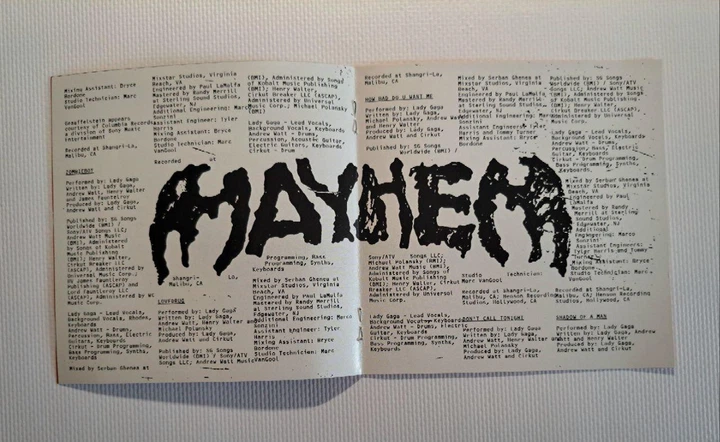 Mixing Assistant: Bryce
Bordone
Studio Technician: Marc
VanGool
Gesaffelstein appears
courtesy of Columbia Records,
a division of Sony Music
Entertainment
Recorded at Shangri-La,
Malibu, CA
ZOMBIEBOY
Performed by: Lady Gaga
Written by: Lady Gaga,
Andrew Watt, Henry Walter
and James Fauntleroy
Produced by: Lady Gaga,
Andrew Watt and Cirkut
Published by: SG Songs
Worldwide (BMI) /
Sony/ATV Songs LLC;
Andrew Watt Music
(BMI), Administered
by Songs of Kobalt
Music Publishing
(BMI); Henry Walter,
Cirkut Breaker LLC
(ASCAP), Administered by
Universal Music Corp.;
James Fauntleroy
(ASCAP), Administered by
Music Corp.
Lady Gaga - Lead Vocals,
Background Vocals, Rhodes,
Keyboards
Andrew Watt - Drums,
Percussion, Bass, Electric
Guitars, Keyboards
Cirkut - Drum Programming,
Bass Programming, Synths,
Keyboards
Mixed by Serban Ghenea at
Mixstar Studios, Virginia
Beach, VA
Engineered by Paul LaMalfa
Mastered by Randy Merrill
at Sterling Sound,
Edgewater, NJ
Additional Engineering: Marco
Sonzini
Assistant Engineer: Tyler
Harris
Mixing Assistant: Bryce
Bordone
Studio Technician: Marc
VanGool
Recorded at
Shangri- La,
Malibu, CA
LOVEDRUG
Performed by: Lady Gaga
Written by: Lady Gaga,
Andrew Watt, Henry Walter and
Michael Polansky
Produced by: Lady Gaga,
Andrew Watt and Cirkut
Published by: SG Songs
Worldwide (BMI) / Sony/ATV
Songs LLC; Andrew Watt Music
(BMI), Administered by Songs
of Kobalt Music Publishing
(BMI); Henry Walter,
Cirkut Breaker LLC (ASCAP),
Administered by Universal
Music Corp.; Michael Polansky
(BMI)
Lady Gaga - Lead Vocals,
Background Vocals, Keyboards
Andrew Watt - Drums,
Percussion, Acoustic Guitar,
Electric Guitars, Keyboards
Cirkut - Drum
Programming, Bass
Programming, Synths,
Keyboards
Mixed by Serban Ghenea at
Mixstar Studios, Virginia
Beach, VA
Engineered by Paul LaMalfa
Mastered by Randy Merrill
at Sterling Sound,
Edgewater, NJ
Additional Engineering: Marco
Sonzini
Assistant Engineer: Tyler
Harris
Mixing Assistant: Bryce
Bordone
Studio Technician: Marc
VanGool
MAYHEM
Recorded at Shangri-La,
Malibu, CA
HOW BAD DO U WANT ME
Performed by: Lady Gaga
Written by: Lady Gaga,
Produced by: Lady Gaga,
Andrew Watt and Cirkut
Published by: SG Songs
Worldwide (BMI) /
Sony/ATV Songs LLC;
Michael Polansky (BMI);
Andrew Watt Music (BMI),
Administered by Songs of
Kobalt Music Publishing
(BMI); Henry Walter, Cirkut
Breaker LLC (ASCAP),
Administered by Universal
Music Corp.
Lady Gaga - Lead Vocals,
Background Vocals, Keyboards
Andrew Watt - Drums, Electric
Guitars, Keyboards
Cirkut - Drum Programming,
Bass Programming, Synths,
Keyboards
Mixed by Serban Ghenea at
Mixstar Studios, Virginia
Beach, VA
Engineered by Paul LaMalfa
Mastered by Randy Merrill
at Sterling Sound,
Edgewater, NJ
Additional Engineering: Marco
Sonzini
Assistant Engineer: Tyler
Harris and Jommy Turner
Mixing Assistant: Bryce
Bordone
Studio Technician:
Marc VanGool
Recorded at Shangri-La,
Malibu, CA; Henson Recording
Studios, Hollywood, CA
DON'T CALL TONIGHT
Performed by: Lady Gaga
Written by: Lady Gaga,
Andrew Watt, Henry Walter and
Michael Polansky
Produced by: Lady Gaga,
Andrew Watt and Cirkut
Published by: SG Songs
Worldwide (BMI) / Sony/ATV
Songs LLC; Andrew Watt Music
(BMI), Administered by Songs
of Kobalt Music Publishing
(BMI); Henry Walter,
Cirkut Breaker LLC (ASCAP),
Administered by Universal
Music Corp.
Lady Gaga - Lead Vocals,
Background Vocals, Keyboards
Andrew Watt - Drums,
Percussion, Bass, Electric
Guitars, Keyboards
Cirkut - Drum Programming,
Bass Programming, Synths,
Keyboards
Mixed by Serban Ghenea at
Mixstar Studios, Virginia
Beach, VA
Engineered by Paul
LaMalfa
Mastered by Randy
Merrill at Sterling
Sound,
Edgewater, NJ
Additional
Engineering: Marco
Sonzini
Assistant Engineer:
Tyler Harris and Jommy
Turner
Mixing Assistant: Bryce
Bordone
Studio Technician: Marc
VanGool
Recorded at Shangri-La,
Malibu, CA; Henson Recording
Studios, Hollywood, CA
SHADOW OF A MAN
Performed by: Lady Gaga
Written by: Lady Gaga, Andrew
Watt, Henry Walter
Produced by: Lady Gaga,
Andrew Watt and Cirkut